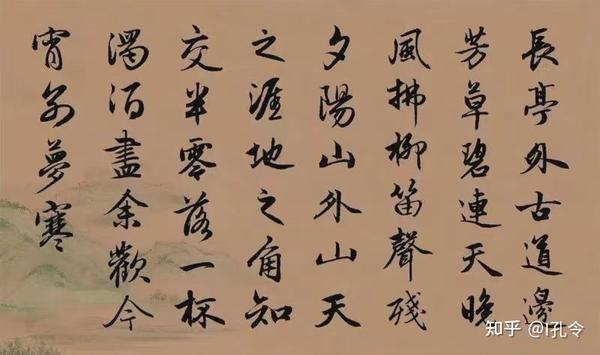 長亭外古道邊
芳草碧連天晚
風拂柳笛聲殘
夕陽山外山天
之涯地之角知
交半零落一杯
濁酒盡余歡今
宵別夢寒
知乎 @i孔令